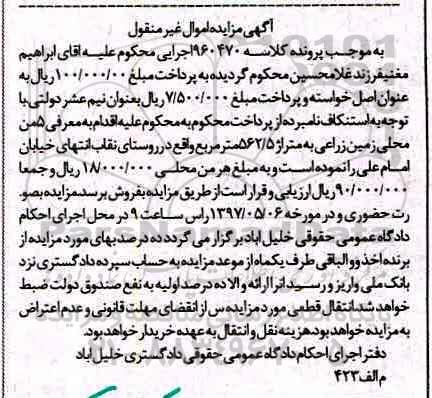 آگهی مزایده اموال غیر منقول
به موجب پرونده کلاسه ۹۶۰۴۷۰ اجرایی محکوم علیه اقای ابراهیم
مغنیفرزند غلامحسین محکوم گردیده به پرداخت مبلغ ۱۰۰/۰۰۰/۰۰ ریال به
عنوان اصل خواسته و پرداخت مبلغ ۷/۵۰۰/۰۰۰ ریال بعنوان نیم عشر دولتی، با
توجه به استنکاف نامبرده از پرداخت محکوم به محکوم علیه اقدام به معرفی ۵من
محلی زمین زراعی به متراژ ۵۶۲/۵ متر مربع واقع در روستای نقاب انتهای خیابان
امام علی را نموده است و به مبلغ هر من محلسی ۱۸/۰۰۰/۰۰۰ ریال و جمعا
۹۰/۰۰۰/۰۰۰ ریال ارزیابی و قرار است از طریق مزایده بفروش برسد. مزایده بصو
رت حضوری و در مورخه ۱۳۹۷/۰۵/۰۶ راس ساعت ۹ در محل اجرای احکام
دادگاه عمومی حقوقی خلیل اباد برگزار می گردد ده درصد بهای مورد مزایده از
برنده اخذ و والباقی ظرف یکماه از موعد مزایده به حساب سپرده دادگستری نزد
بانک ملی واریز و رسید انرا ارائه و الا ده درصد اولیه به نفع صندوق دولت ضبط
خواهد شد. انتقال قطعی مورد مزایده س از انقضای مهلت قانونی و عدم اعتراض
به مزایده خواهد بود. هزینه نقل و انتقال به عهده خریدار خواهد بود.
دفتر اجرای احکام دادگاه عمومی حقوقی دادگستری خلیل اباد
م الف ۴۲۳